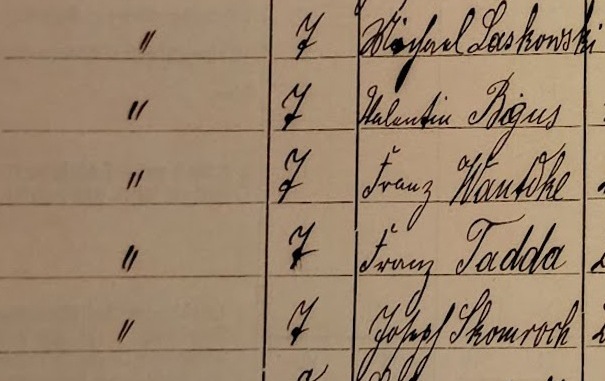 〃 7 Michael Laskowski
〃 7 Valentin Bigus
〃 7 Franz Wandtke
〃 7 Franz Tadda
〃 7 Joseph Skomroch